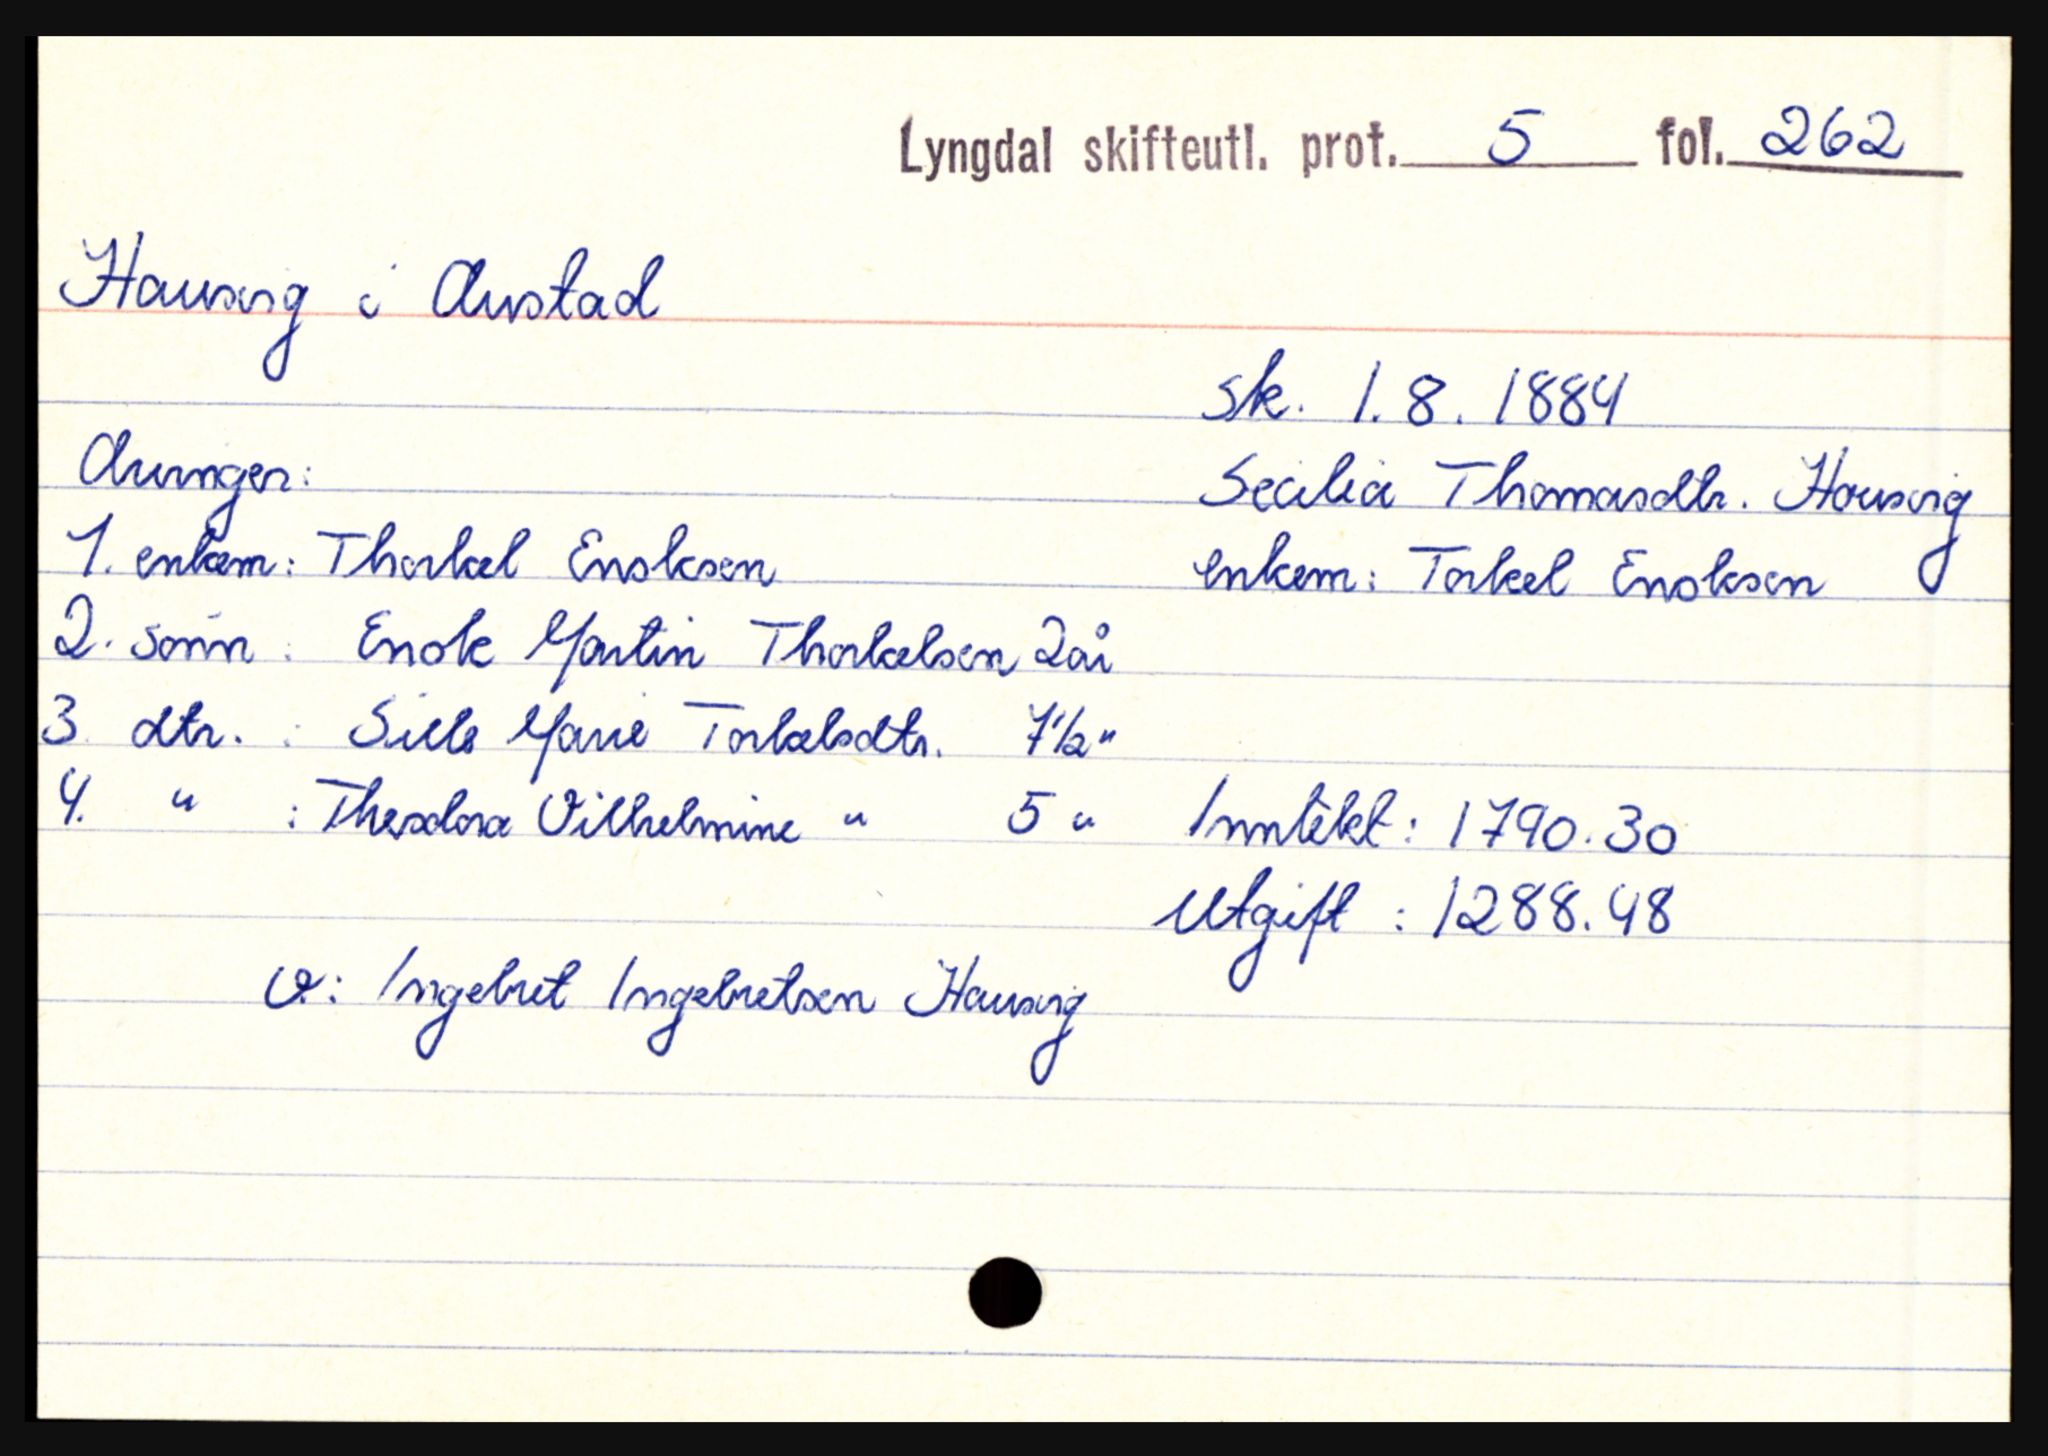 Lyngdal skifteutl. prot. 5 fol. 262
Hausvig i Austad
sk. 1.8.1884
Arvinger:
Secilia Thomasdtr. Hausvig
1. enkem: Thorkel Enoksen
enkem: Torkel Enoksen
2. sønn : Enok Martin Thorkelsen 2 år
3 dtr. : Sille Marie Torkelsdtr. 7½ "
4. " : Theodora Vilhelmine " 5 "
Inntekt: 1790.30
Utgift : 1288.48
v.: Ingebret Ingebretsen Hausvig